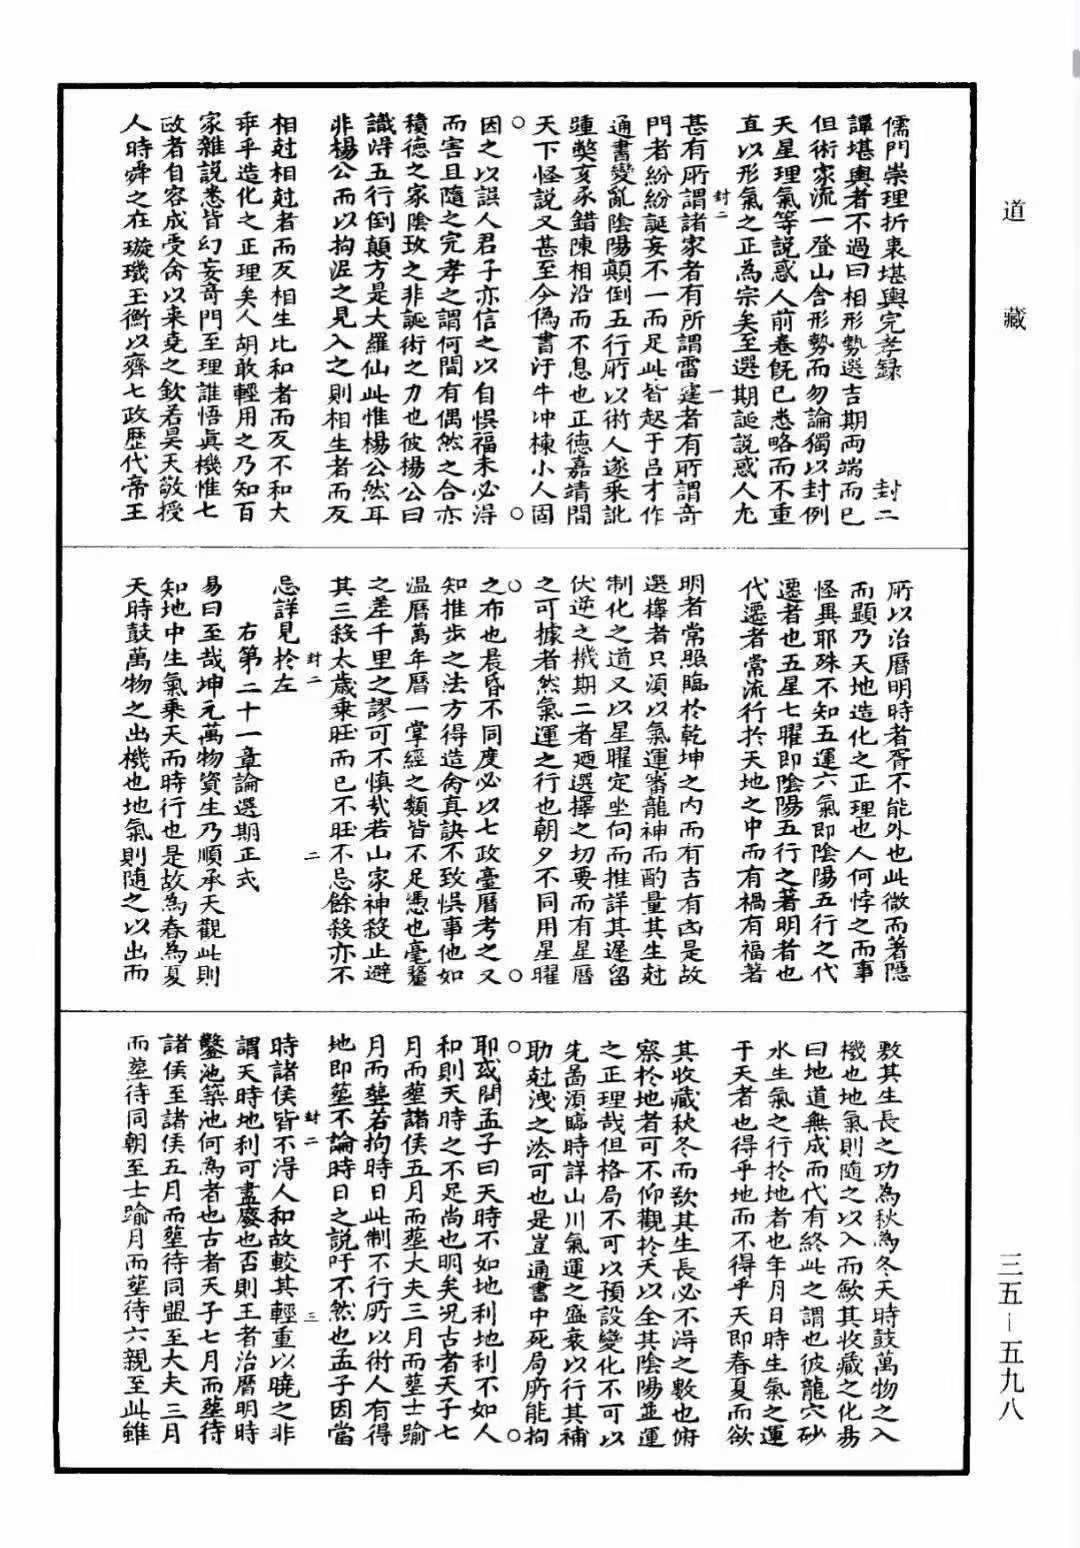 道藏
儒門崇理折衷堪輿完孝録　封二
譚堪輿者不過曰相形勢選吉期兩端而已
但術家流一登山舍形勢而勿論獨以封例
天星理氣等說惑人前卷既已悉略而不重
直以形氣之正為宗矣至選期誕說惑人尤
封二　一
甚有所謂諸家者有所謂雷霆者有所謂竒
門者紛紛誕妄不一而足此皆起于呂才作
通書變亂陰陽顛倒五行所以術人遂乘訛
踵獘亥豕錯陳相沿而不息也正德嘉靖間
天下怪說又甚至今偽書汗牛冲棟小人固
○　○
因之以誤人君子亦信之以自悞福未必淂
而害且隨之完孝之謂何間有偶然之合亦
積德之家陰致之非誕術之力也彼楊公曰
識淂五行倒顛方是大羅仙此惟楊公然耳
非楊公而以拘泥之見入之則相生者而反
相尅相尅者而反相生比和者而反不和大
乖乎造化之正理矣人胡敢輕用之乃知百
家雜說悉皆幻妄竒門至理誰悟真機惟七
政者自容成受侖以来堯之欽若昊天敬授
人時舜之在璇璣玉衡以齊七政歷代帝王
所以治曆明時者胥不能外也此微而著隱
而顯乃天地造化之正理也人何悖之而事
怪異耶殊不知五運六氣即陰陽五行之代
遷者也五星七曜即陰陽五行之著明者也
代遷者常流行扵天地之中而有禍有福著
明者常照臨扵乾坤之内而有吉有凶是故
選擇者只須以氣運審龍神而酌量其生尅
制化之道又以星曜定坐向而推詳其遲留
伏逆之機期二者廼選擇之切要而有星曆
之可據者然氣運之行也朝夕不同用星曜
○　○
之布也晨昏不同度必以七政臺曆考之又
知推步之法方得造侖真訣不致悞事他如
温曆萬年曆一掌經之類皆不足憑也毫釐
之差千里之謬可不慎㢤若山家神殺止避
其三殺太歲乗旺而已不旺不忌餘殺亦不
封二　二
忌詳見扵左
右第二十一章論選期正式
易曰至哉坤元萬物資生乃順承天觀此則
知地中生氣乗天而時行也是故為春為夏
天時鼓萬物之出機也地氣則随之以出而
敷其生長之功為秋為冬天時鼓萬物之入
機也地氣則随之以入而歛其收藏之化昜
曰地道無成而代有終此之謂也彼龍穴砂
水生氣之行扵地者也年月日時生氣之運
于天者也得乎地而不得乎天即春夏而欲
其收藏秋冬而欲其生長必不淂之數也俯
察扵地者可不仰觀扵天以全其陰陽並運
之正理哉但格局不可以預設變化不可以
先啚須臨時詳山川氣運之盛衰以行其補
助尅洩之法可也是豈通書中死局所能拘
○　○
耶或問孟子曰天時不如地利地利不如人
和則天時之不足尚也明矣况古者天子七
月而塟諸侯五月而塟大夫三月而塟士踰
月而塟若拘時日此制不行所以術人有得
地即塟不論時日之說吁不然也孟子因當
封二　三
時諸侯皆不淂人和故較其輕重以曉之非
謂天時地利可盡廢也否則王者治曆明時
鑿池築池何為者也古者天子七月而塟待
諸侯至諸侯五月而塟待同盟至大夫三月
而塟待同朝至士踰月而塟待六親至此雖
三五－五九八